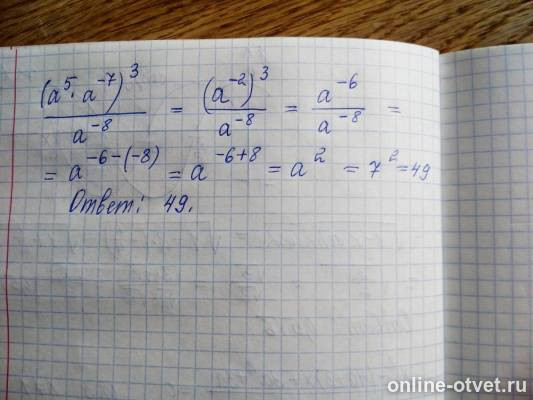 (a⁵·a⁻⁷)³/a⁻⁸ = (a⁻²)³/a⁻⁸ = a⁻⁶/a⁻⁸ =
= a⁻⁶⁻⁽⁻⁸⁾ = a⁻⁶⁺⁸ = a² = 7² = 49
Ответ: 49.
online-otvet.ru